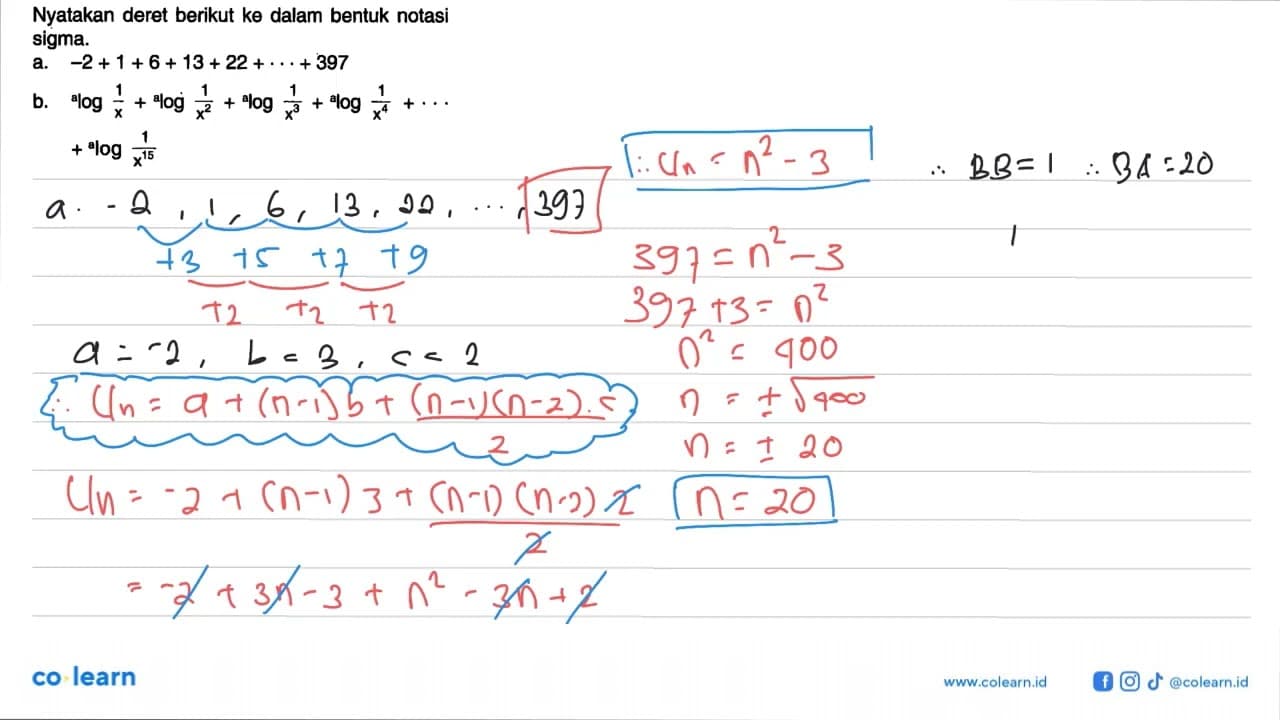 Nyatakan deret berikut ke dalam bentuk notasi
sigma.
a. -2 + 1 + 6 + 13 + 22 + ⋯ + 397
b. ᵃlog 1/x + ᵃlog 1/x² + ᵃlog 1/x³ + ᵃlog 1/x⁴ + ⋯
+ ᵃlog 1/x¹⁵
a. -2, 1, 6, 13, 22, ⋯, 397
+3 +5 +7 +9
+2 +2 +2
a = -2, b = 3, c = 2
∴ Un = a + (n-1)b + (n-1)(n-2).c/2
Un = -2 + (n-1)3 + (n-1)(n-2)2/2
= -2 + 3n - 3 + n² - 3n + 2
∴ Un = n² - 3
397 = n² - 3
397 + 3 = n²
n² = 400
n = ± √400
n = ± 20
n = 20
∴ BB = 1 ∴ BA = 20
1
co·learn
www.colearn.id
@colearn.id